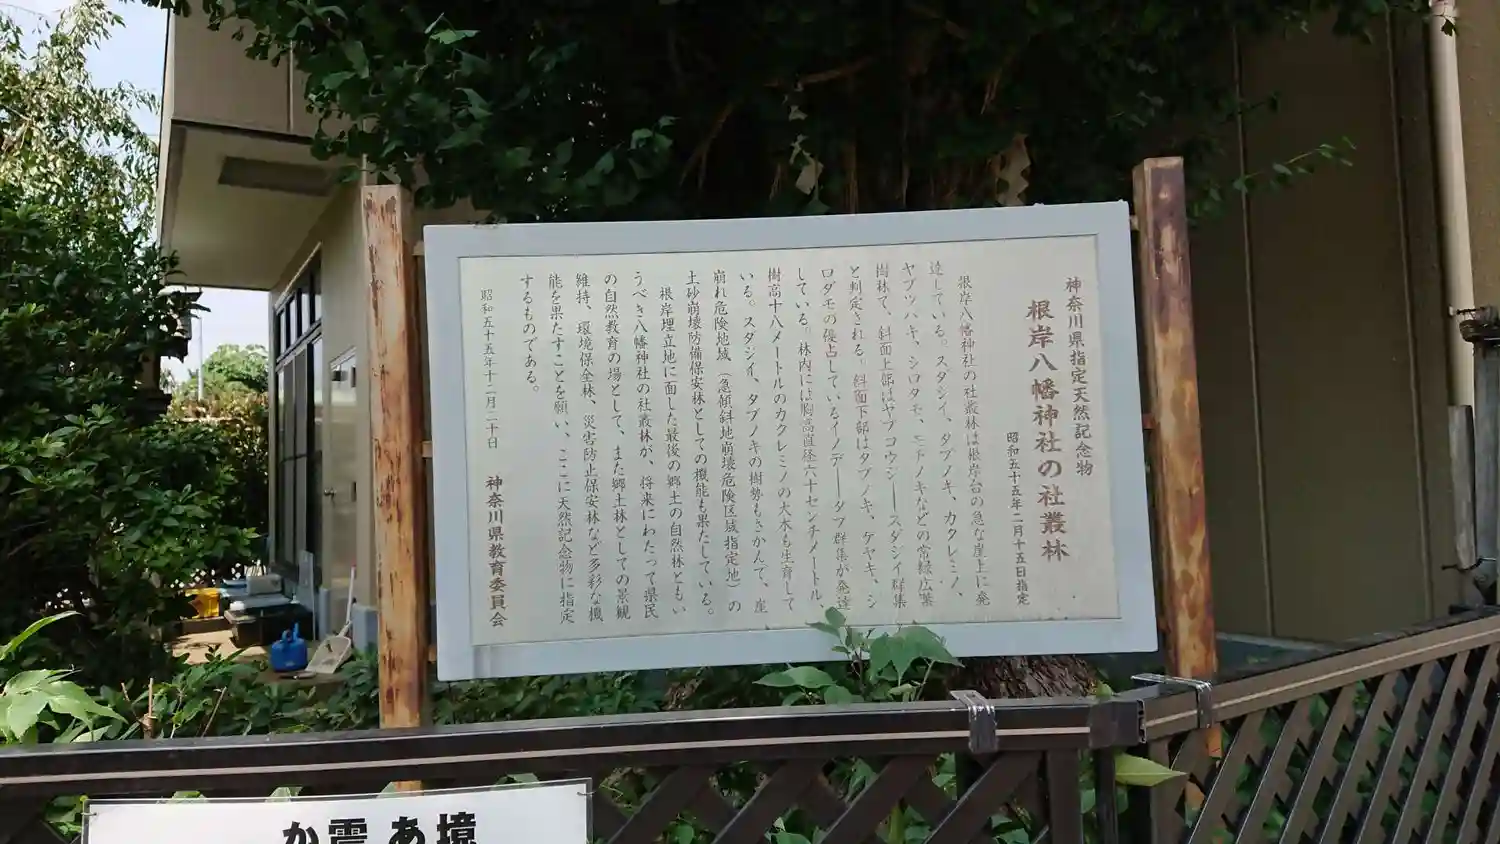 神奈川県指定天然記念物
根岸八幡神社の社叢林
昭和五十五年二月十五日指定
根岸八幡神社の社叢林は根岸台の急な崖上に発
達している。スダシイ、タブノキ、カクレミノ、
ヤブツバキ、シロダモ、モチノキなどの常緑広葉
樹林で、斜面上部はヤブコウジ――スダシイ群集
と判定される。斜面下部はタブノキ、ケヤキ、シ
ロダモの優占しているイノデ――タブ群集が発達
している。林内には胸高直径六十センチメートル、
樹高十八メートルのカクレミノの大木も生育して
いる。スダシイ、タブノキの樹勢もさかんで、崖
崩れ危険地域（急傾斜地崩壊危険区域指定地）の
土砂崩壊防備保安林としての機能も果たしている。
根岸埋立地に面した最後の郷土の自然林ともい
うべき八幡神社の社叢林が、将来にわたって県民
の自然教育の場として、また郷土林としての景観
維持、環境保全林、災害防止保安林など多彩な機
能を果たすことを願い、ここに天然記念物に指定
するものである。
昭和五十五年十二月二十日
神奈川県教育委員会